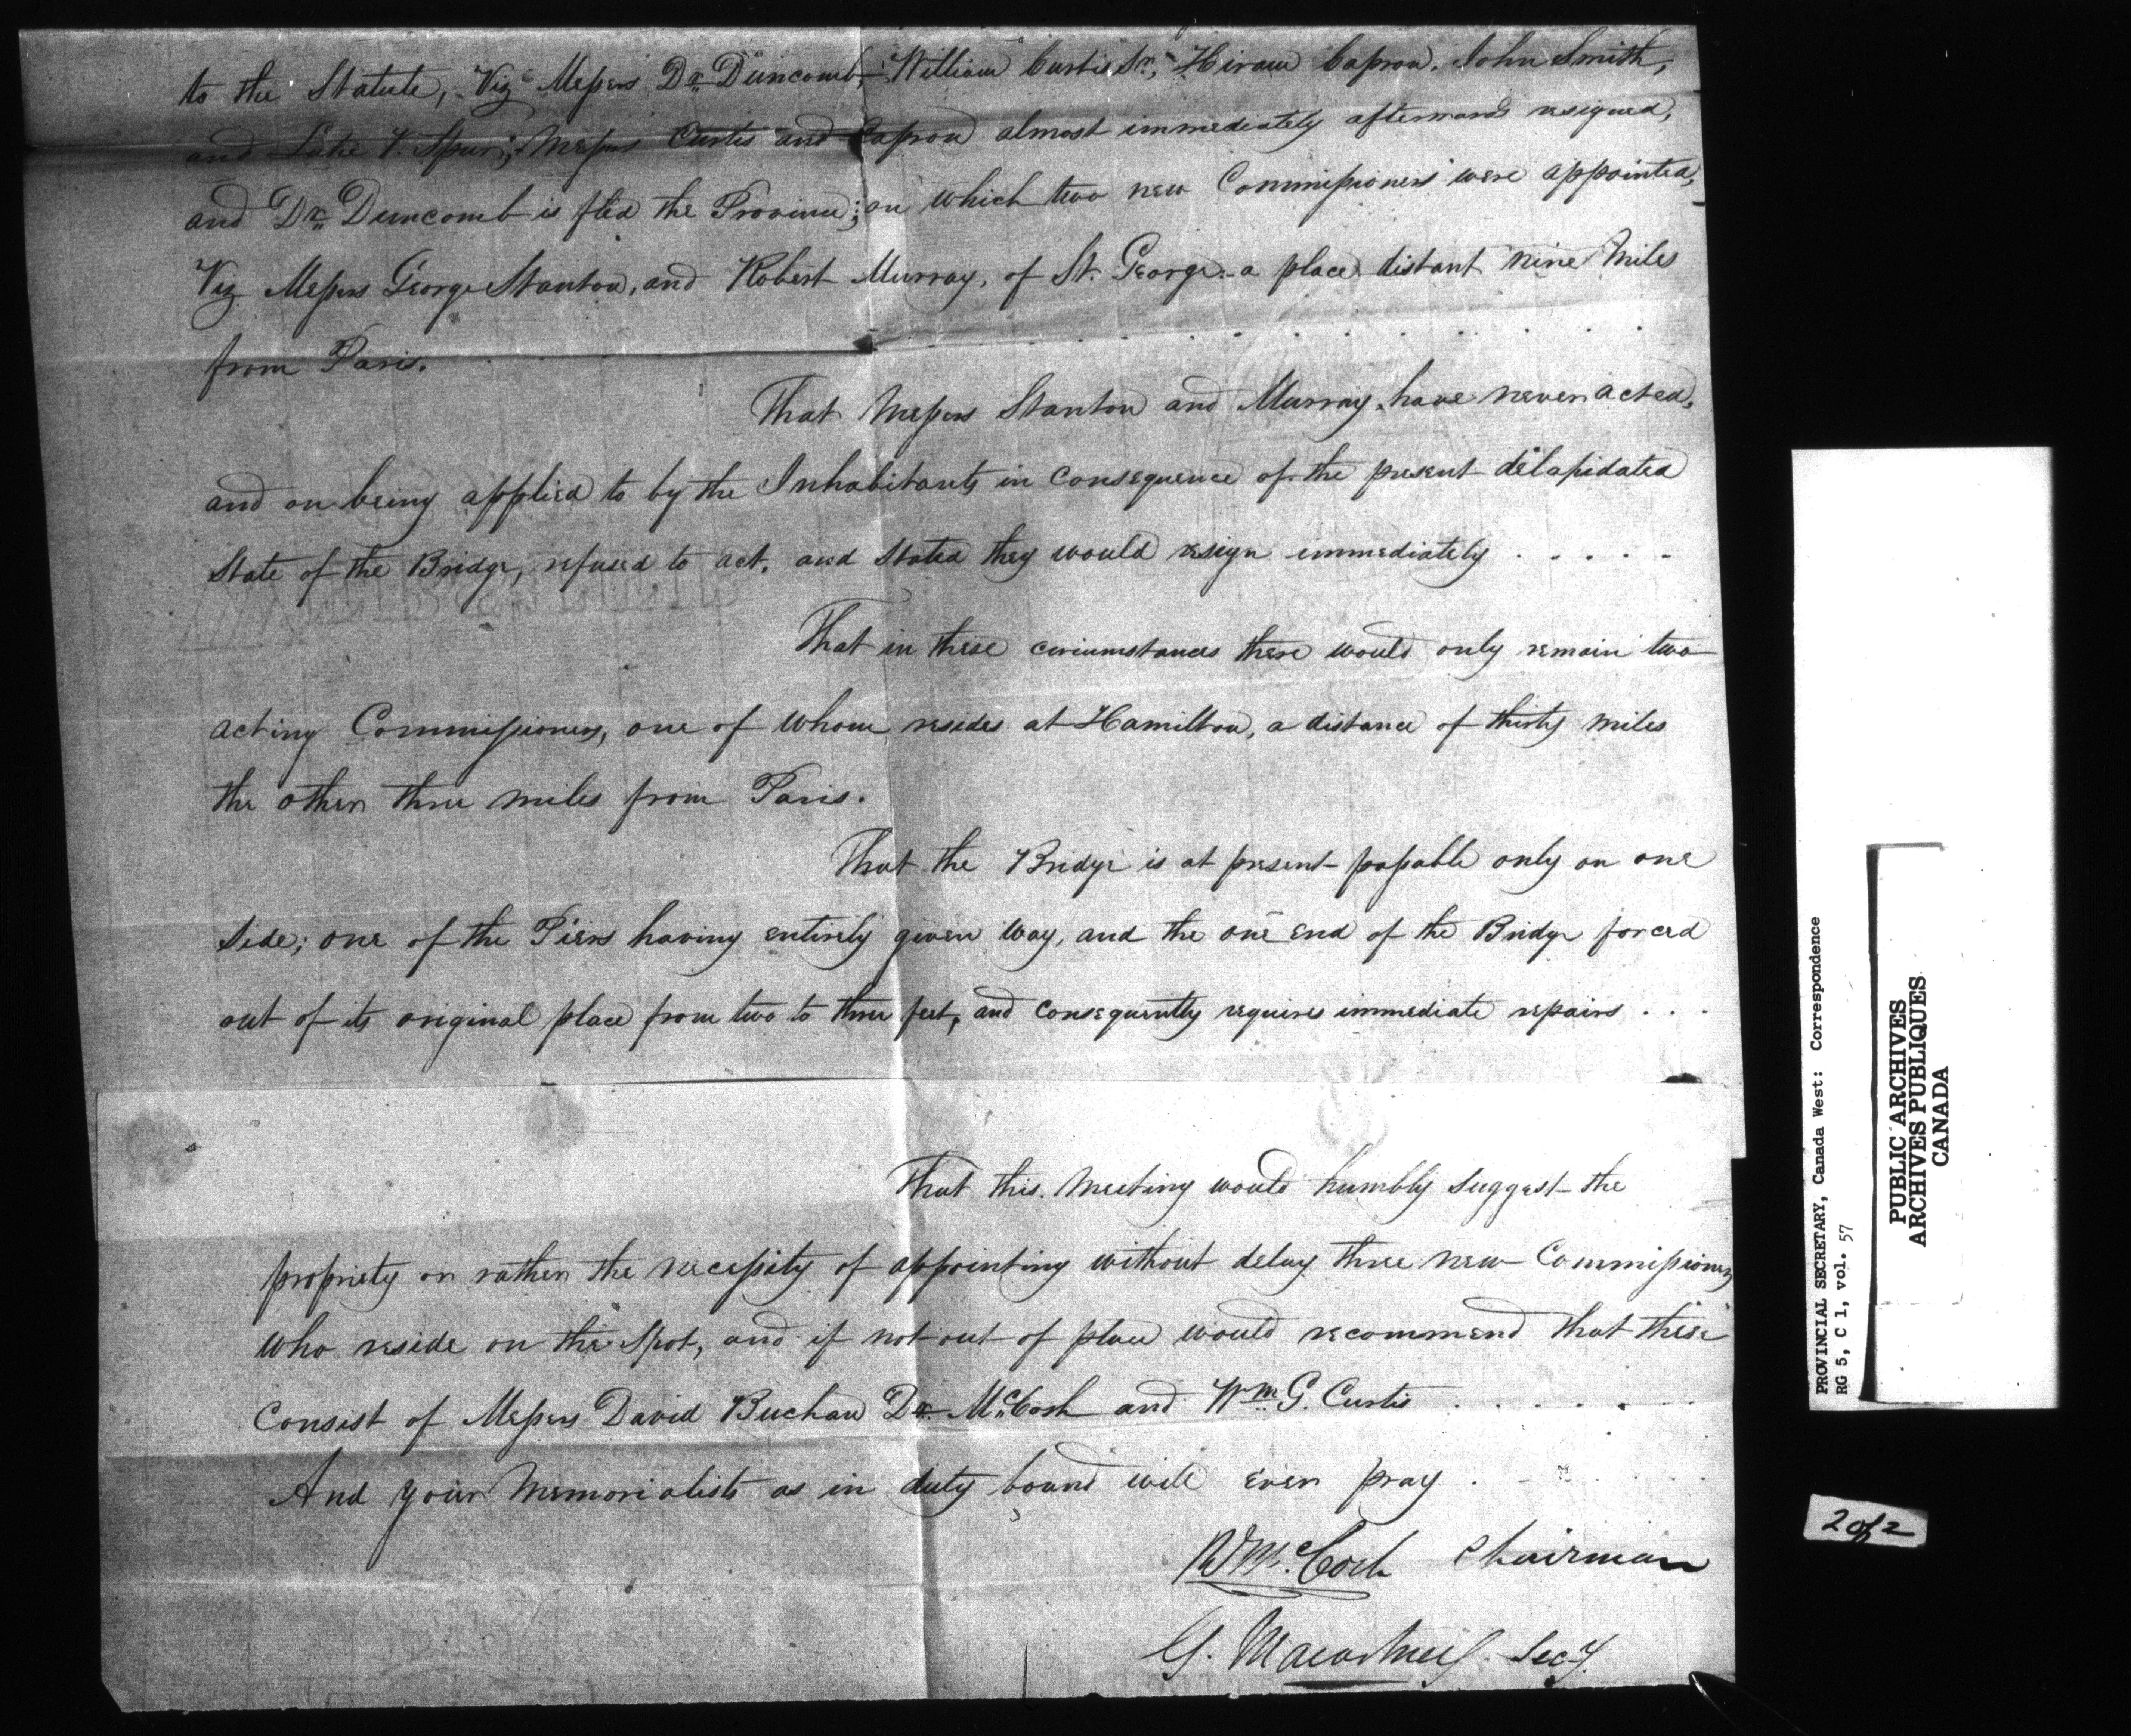 to the Statute, Viz Messrs Dr. Duncomb, William Curtis Sr, Hiram Capron, John Smith,
and Luke V. Spur; Messrs Curtis and Capron almost immediately afterwards resigned,
and Dr. Duncomb is fled the Province; on which two new Commissioners were appointed,
Viz Messrs George Stanton, and Robert Murray, of St. George. a place distant nine Miles
from Paris.
That Messrs Stanton and Murray, have never acted,
and on being applied to by the Inhabitants in consequence of the present delapidated
State of the Bridge, refused to act, and stated they would resign immediately . . . . .
That in these circumstances there would only remain two
acting Commissioners, one of whom resides at Hamilton, a distance of thirty miles
the other three miles from Paris.
That the Bridge is at present passable only on one
side; one of the Piers having entirely given way, and the one end of the Bridge forced
out of its original place from two to three feet, and consequently requires immediate repairs . . .
That this Meeting would humbly suggest the
propriety or rather the necessity of appointing without delay three new Commissioners
who reside on the spot, and if not out of place would recommend that these
Consist of Messrs David Buchan Dr. McCosh and Wm. G. Curtis . . . . . . .
And your Memorialists as in duty bound will ever pray . . .
McCosh Chairman
G. Macartney Secy.
PROVINCIAL SECRETARY, Canada West: Correspondence
RG 5, C 1, vol. 57
PUBLIC ARCHIVES
ARCHIVES PUBLIQUES
CANADA
2 of 2